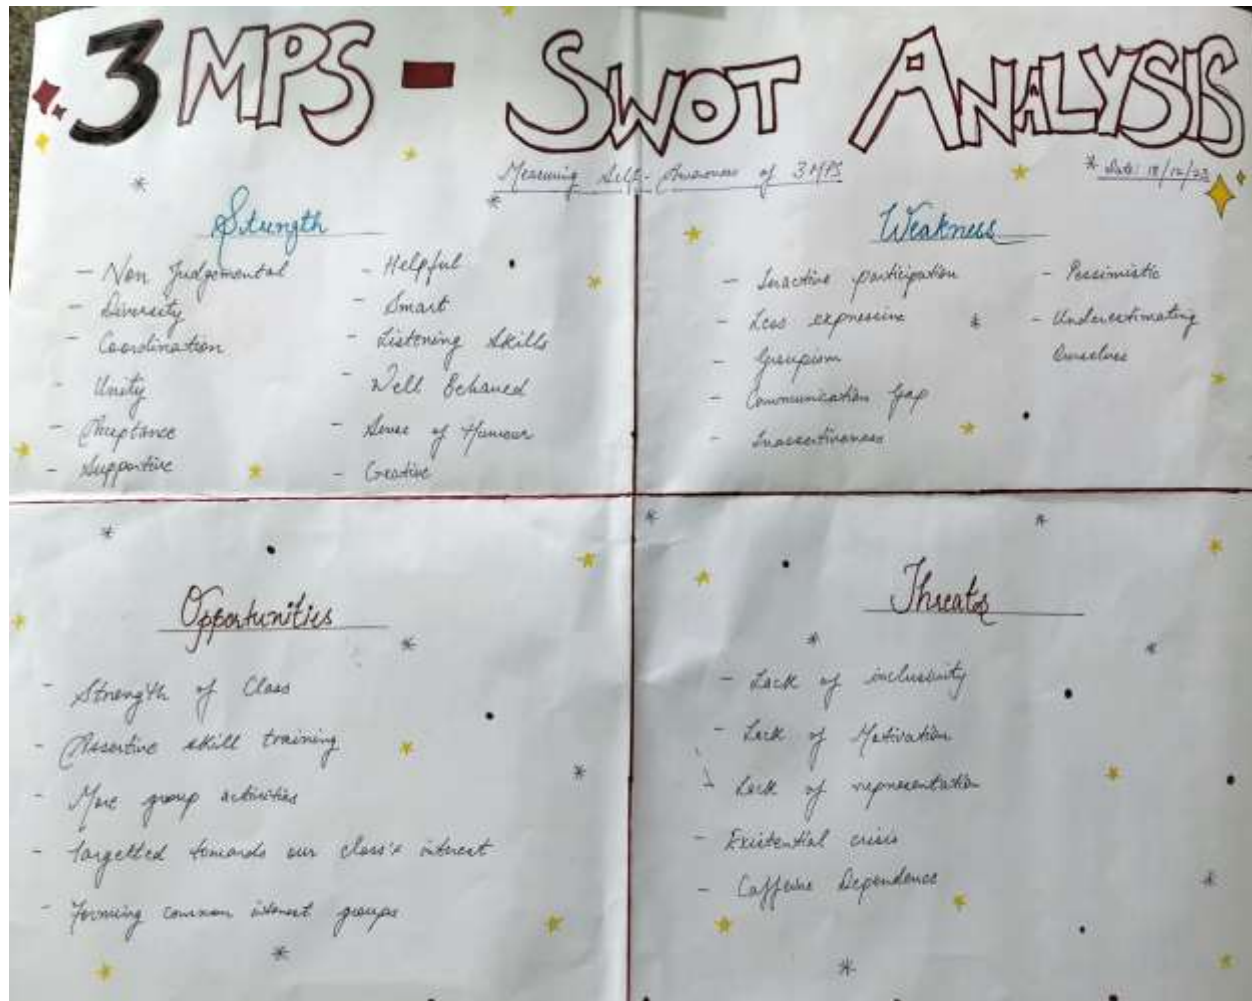 3 MPS - SWOT ANALYSIS
Measuring Self-Awareness of 3 MPS
* Date: 18/12/23
Strength
- Non Judgemental
- Diversity
- Coordination
- Unity
- Acceptance
- Supportive
- Helpful
- Smart
- Listening Skills
- Well Behaved
- Sense of Humour
- Creative
Weakness
- Inactive participation
- Less expressive
- Groupism
- Communication Gap
- Inassertiveness
- Pessimistic
- Underestimating
Ourselves
Opportunities
- Strength of Class
- Assertive skill training
- More group activities
- Targetted towards our class's interest
- Forming common interest groups
Threats
- Lack of inclusivity
- Lack of Motivation
- Lack of representation
- Existential crisis
- Caffeine Dependence